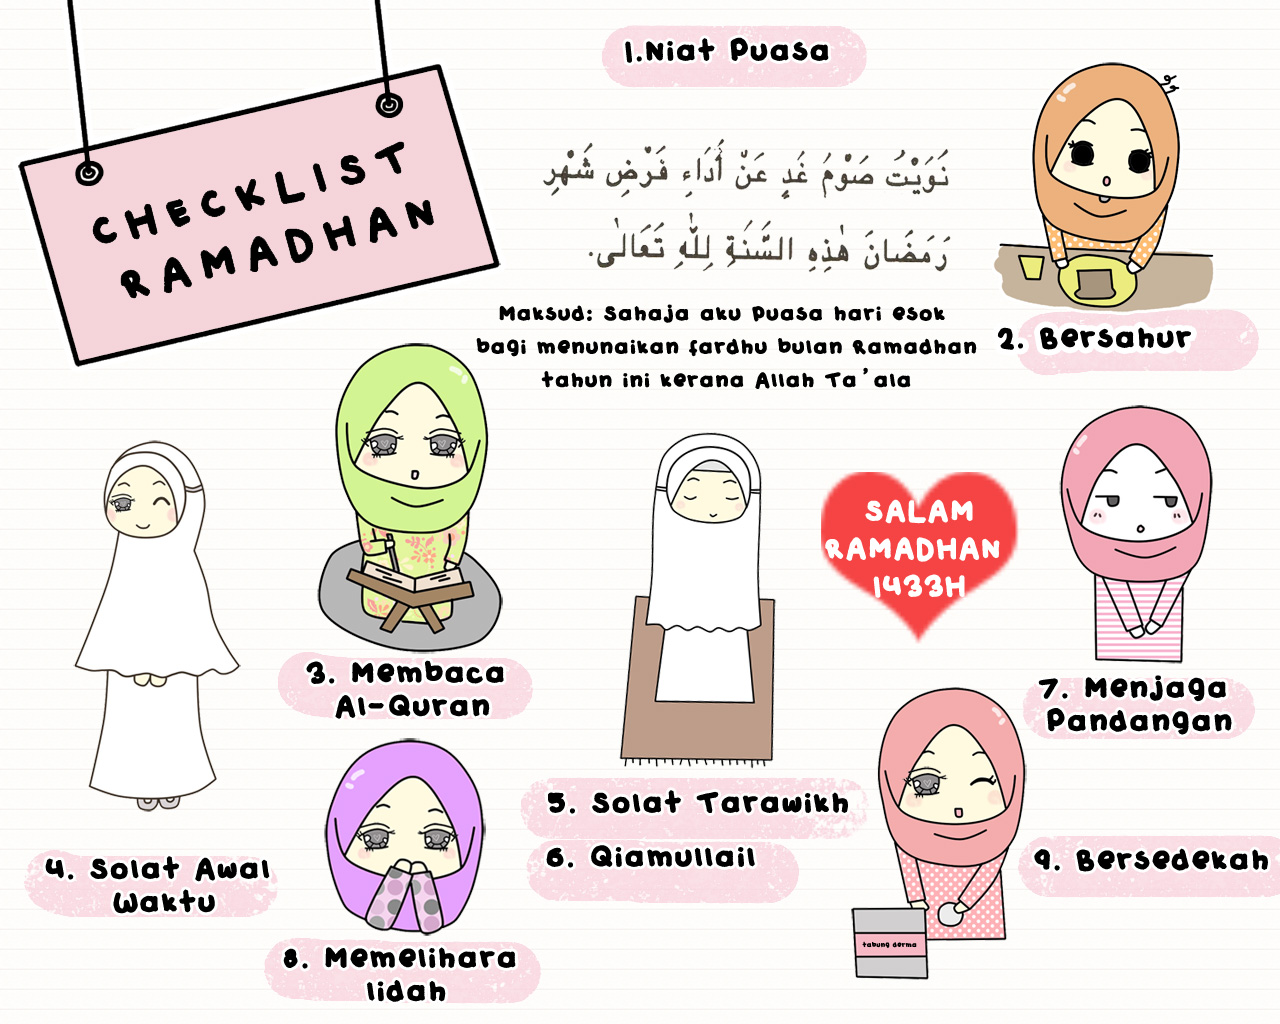 CHECKLIST
RAMADHAN
1.Niat Puasa
نَوَيْتُ صَوْمَ غَدٍ عَنْ أَدَاءِ فَرْضِ شَهْرِ
رَمَضَانَ هٰذِهِ السَّنَةِ لِلّٰهِ تَعَالٰى.
Maksud: Sahaja aku puasa hari esok
bagi menunaikan fardhu bulan Ramadhan
tahun ini kerana Allah Ta'ala
2. Bersahur
3. Membaca
Al-Quran
4. Solat Awal
Waktu
5. Solat Tarawikh
6. Qiamullail
SALAM
RAMADHAN
1433H
7. Menjaga
Pandangan
8. Memelihara
lidah
9. Bersedekah
tabung derma